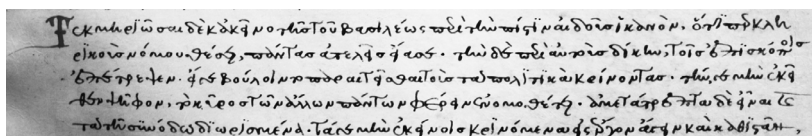 Τεκμηριῶσαι δὲ κἀκεῖνο τὴν τοῦ βασιλέως περὶ τὴν πίστιν αἰδοῖ ἱκανὸν. ὅτιπερ κλη
ρικοῖς νόμου θέσει, πάντας ἀτελεῖς εἴασε. τὴν δὲ περὶ αὐτοὺς δίκην, τοῖς ἐπισκόποις
ἐπέτρεψεν. εἴγε βούλοιντο παραιτεῖσθαι τοὺς τὰ πολιτικὰ κρίνοντας. τήν γε μὴν ἐκεῖ
θεν ψῆφον, τῶν ἄλλων πάντων φέρειν ἐνομοθέτει. ἀμετάτρεπτα δὲ εἶναι
τὰ τῆ συνόδω διωρισμένα. τά γε μὴν ἐκείνοις κρινόμενα εἰς ἔργον ἄγειν καὶ